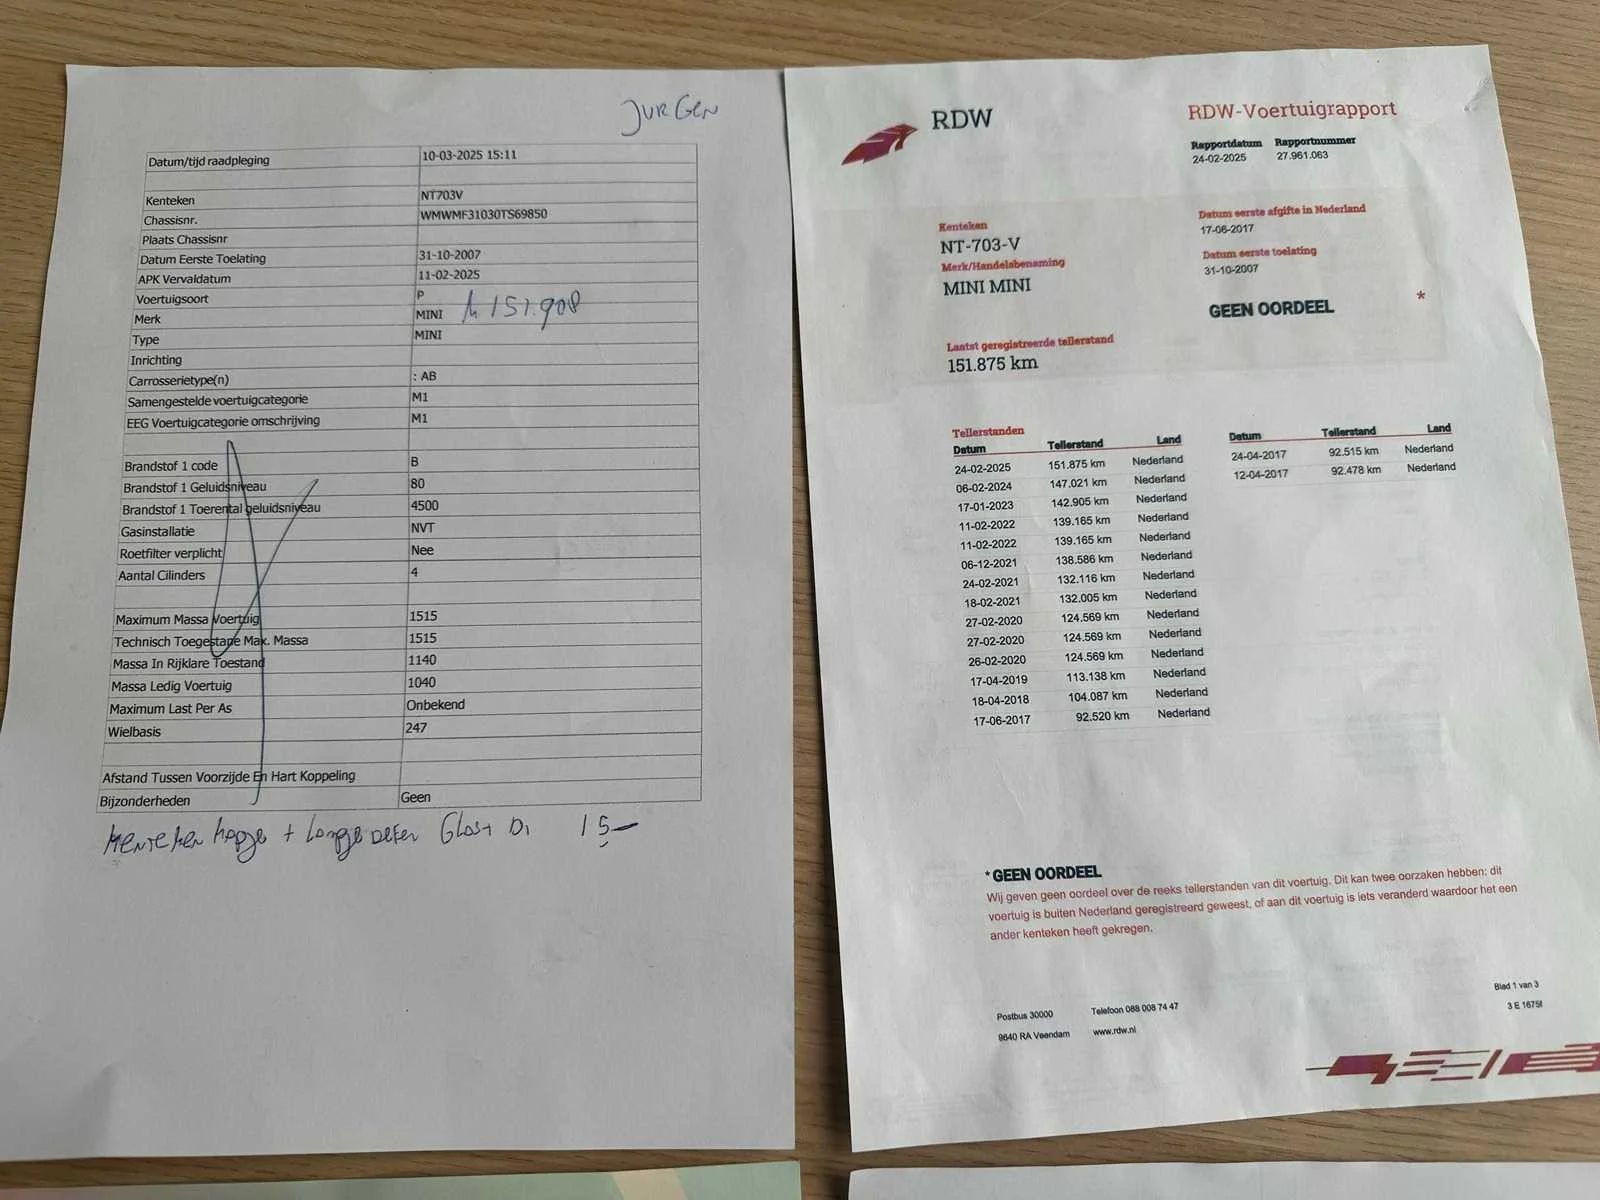 JURGEN
Datum/tijd raadpleging 10-03-2025 15:11
Kenteken NT703V
Chassisnr. WMWMF31030TS69850
Plaats Chassisnr
Datum Eerste Toelating 31-10-2007
APK Vervaldatum 11-02-2025
Voertuigsoort P
Merk MINI 151.908
Type MINI
Inrichting
Carrosserietype(n) : AB
Samengestelde voertuigcategorie M1
EEG Voertuigcategorie omschrijving M1
Brandstof 1 code B
Brandstof 1 Geluidsniveau 80
Brandstof 1 Toerental geluidsniveau 4500
Gasinstallatie NVT
Roetfilter verplicht Nee
Aantal Cilinders 4
Maximum Massa Voertuig 1515
Technisch Toegestane Max. Massa 1515
Massa In Rijklare Toestand 1140
Massa Ledig Voertuig 1040
Maximum Last Per As Onbekend
Wielbasis 247
Afstand Tussen Voorzijde En Hart Koppeling
Bijzonderheden Geen
Kenteken + 15,-
RDW
RDW-Voertuigrapport
Rapportdatum Rapportnummer
24-02-2025 27.961.063
Kenteken
NT-703-V
Merk/Handelsbenaming
MINI MINI
Datum eerste afgifte in Nederland
17-06-2017
Datum eerste toelating
31-10-2007
GEEN OORDEEL *
Laatst geregistreerde tellerstand
151.875 km
Tellerstanden
Datum Tellerstand Land
24-02-2025 151.875 km Nederland
06-02-2024 147.021 km Nederland
17-01-2023 142.905 km Nederland
11-02-2022 139.165 km Nederland
11-02-2022 139.165 km Nederland
06-12-2021 138.586 km Nederland
24-02-2021 132.116 km Nederland
18-02-2021 132.005 km Nederland
27-02-2020 124.569 km Nederland
27-02-2020 124.569 km Nederland
26-02-2020 124.569 km Nederland
17-04-2019 113.138 km Nederland
18-04-2018 104.087 km Nederland
17-06-2017 92.520 km Nederland
Datum Tellerstand Land
24-04-2017 92.515 km Nederland
12-04-2017 92.478 km Nederland
* GEEN OORDEEL
Wij geven geen oordeel over de reeks tellerstanden van dit voertuig. Dit kan twee oorzaken hebben: dit
voertuig is buiten Nederland geregistreerd geweest, of aan dit voertuig is iets veranderd waardoor het een
ander kenteken heeft gekregen.
Postbus 30000 Telefoon 088 008 74 47
9640 RA Veendam www.rdw.nl
Blad 1 van 3
3 E 1675f